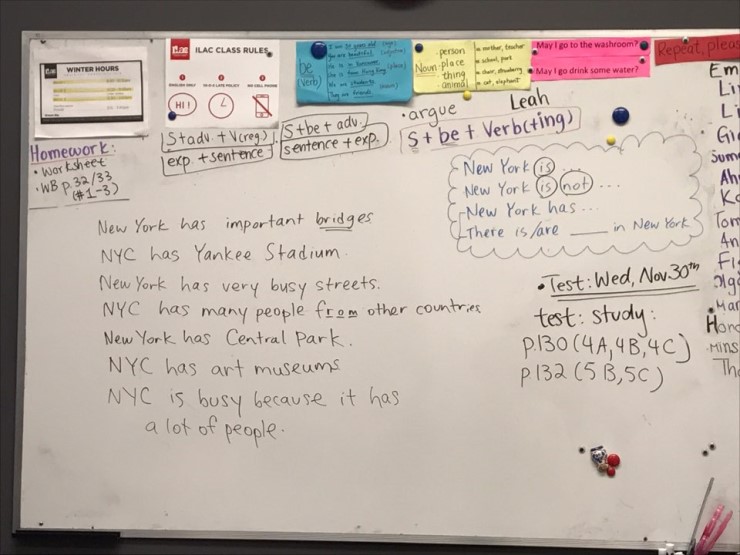 ILAC
WINTER HOURS
ILAC CLASS RULES
ENGLISH ONLY
NO CELL PHONE
HI!
be
(verb)
Noun:
person
place
thing
animal
mother, teacher
school, park
chair, strawberry
cat, elephant
May I go to the washroom?
May I go drink some water?
Repeat, pleas
Homework:
• Worksheet
• WB p.32/33
(#1-3)
S+adv. + V(reg.)
exp. + sentence
S+be+adv.
sentence + exp.
• argue
Leah
S + be + Verb(+ing)
New York is ...
New York is not ...
New York has ...
There is/are ____ in New York
New York has important bridges
NYC has Yankee Stadium.
New York has very busy streets.
NYC has many people from other countries
New York has Central Park.
NYC has art museums
NYC is busy because it has
a lot of people.
• Test: Wed, Nov. 30th
test: study:
p.130 (4A, 4B, 4C)
p.132 (5B, 5C)
Em
Li
Gi
Suma
Ah
Tom
An
Fi
Olga
Mar
Hand
Mins
Th